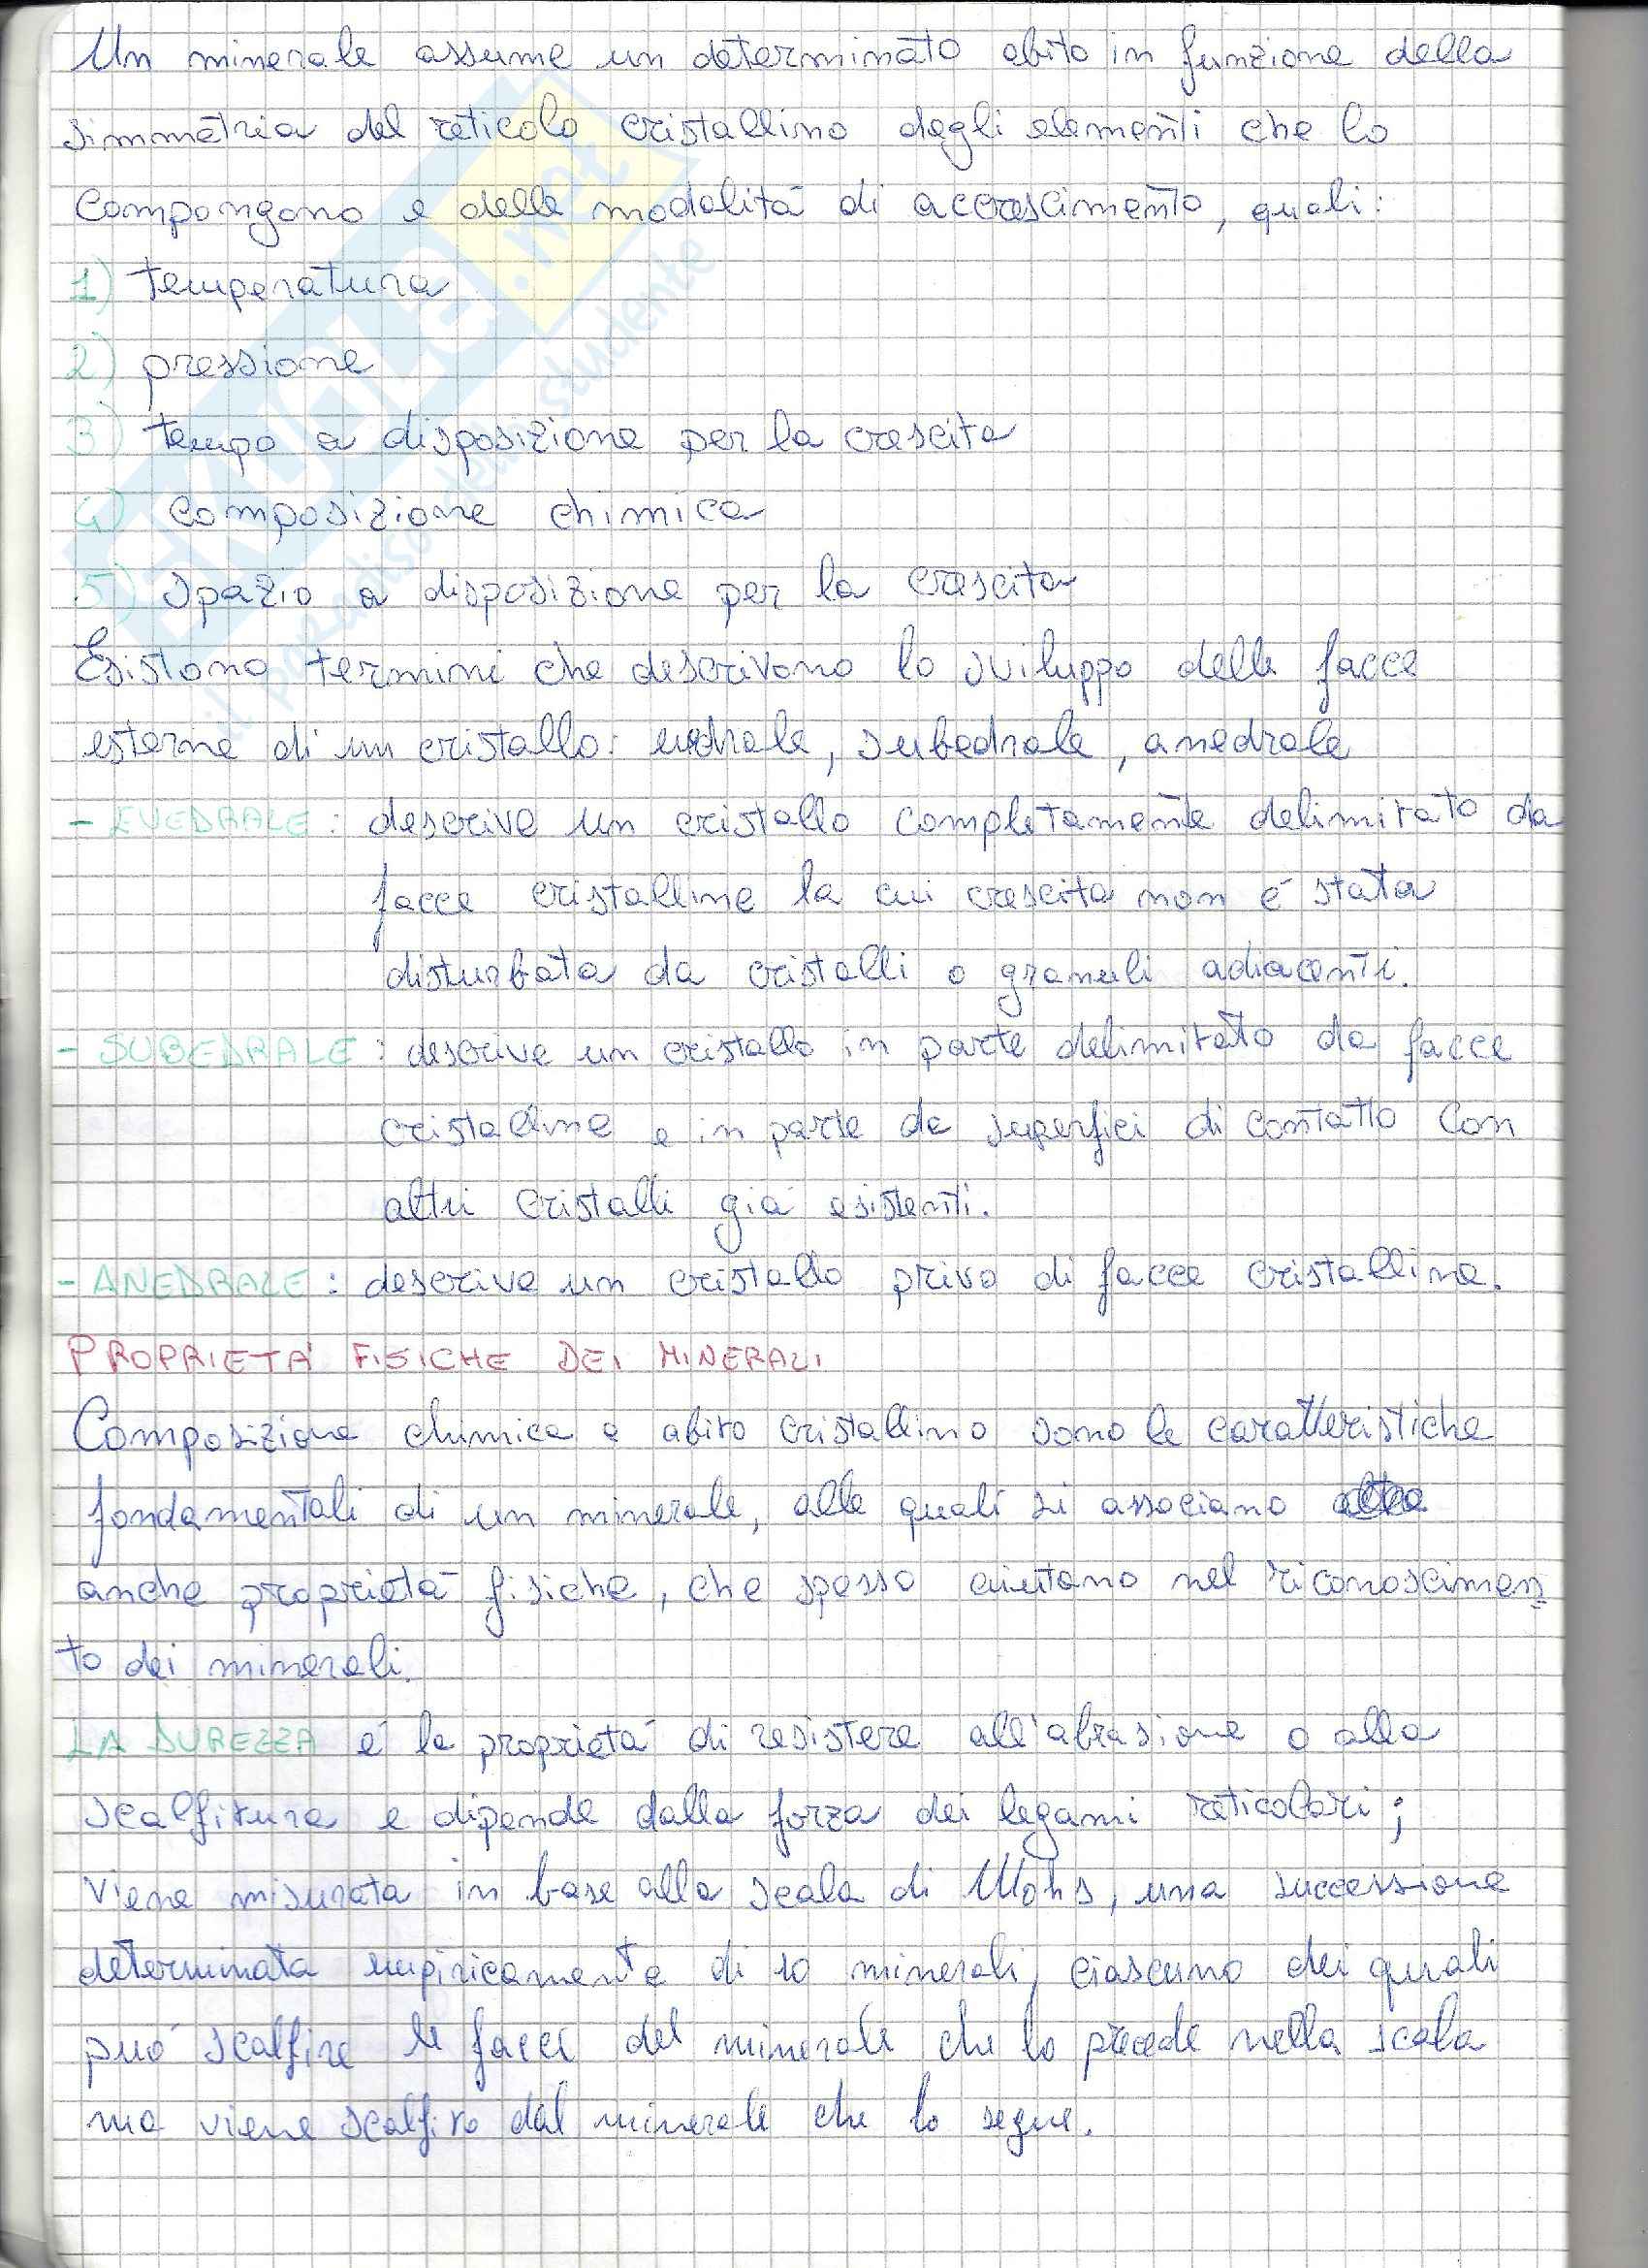 Un minerale assume un determinato abito in funzione della
simmetria del reticolo cristallino degli elementi che lo
compongono e delle modalità di accrescimento, quali:
1) temperatura
2) pressione
3) tempo a disposizione per la crescita
4) composizione chimica
5) spazio a disposizione per la crescita
Esistono termini che descrivono lo sviluppo delle facce
esterne di un cristallo: euedrale, subedrale, anedrale
- EUEDRALE: descrive un cristallo completamente delimitato da
facce cristalline la cui crescita non é stata
disturbata da cristalli o granuli adiacenti.
- SUBEDRALE: descrive un cristallo in parte delimitato da facce
cristalline e in parte da superfici di contatto con
altri cristalli già esistenti.
- ANEDRALE: descrive un cristallo privo di facce cristalline.
PROPRIETÀ FISICHE DEI MINERALI
Composizione chimica e abito cristallino sono le caratteristiche
fondamentali di un minerale, alle quali si associano
anche proprietà fisiche, che spesso aiutano nel riconoscimen
to dei minerali.
LA DUREZZA é la proprietà di resistere all'abrasione o alla
scalfitura e dipende dalla forza dei legami reticolari;
viene misurata in base alla scala di Mohs, una successione
determinata empiricamente di 10 minerali, ciascuno dei quali
può scalfire le facce del minerale che lo precede nella scala
ma viene scalfito dal minerale che lo segue.
SKUOLA.net
il paradiso dello studente